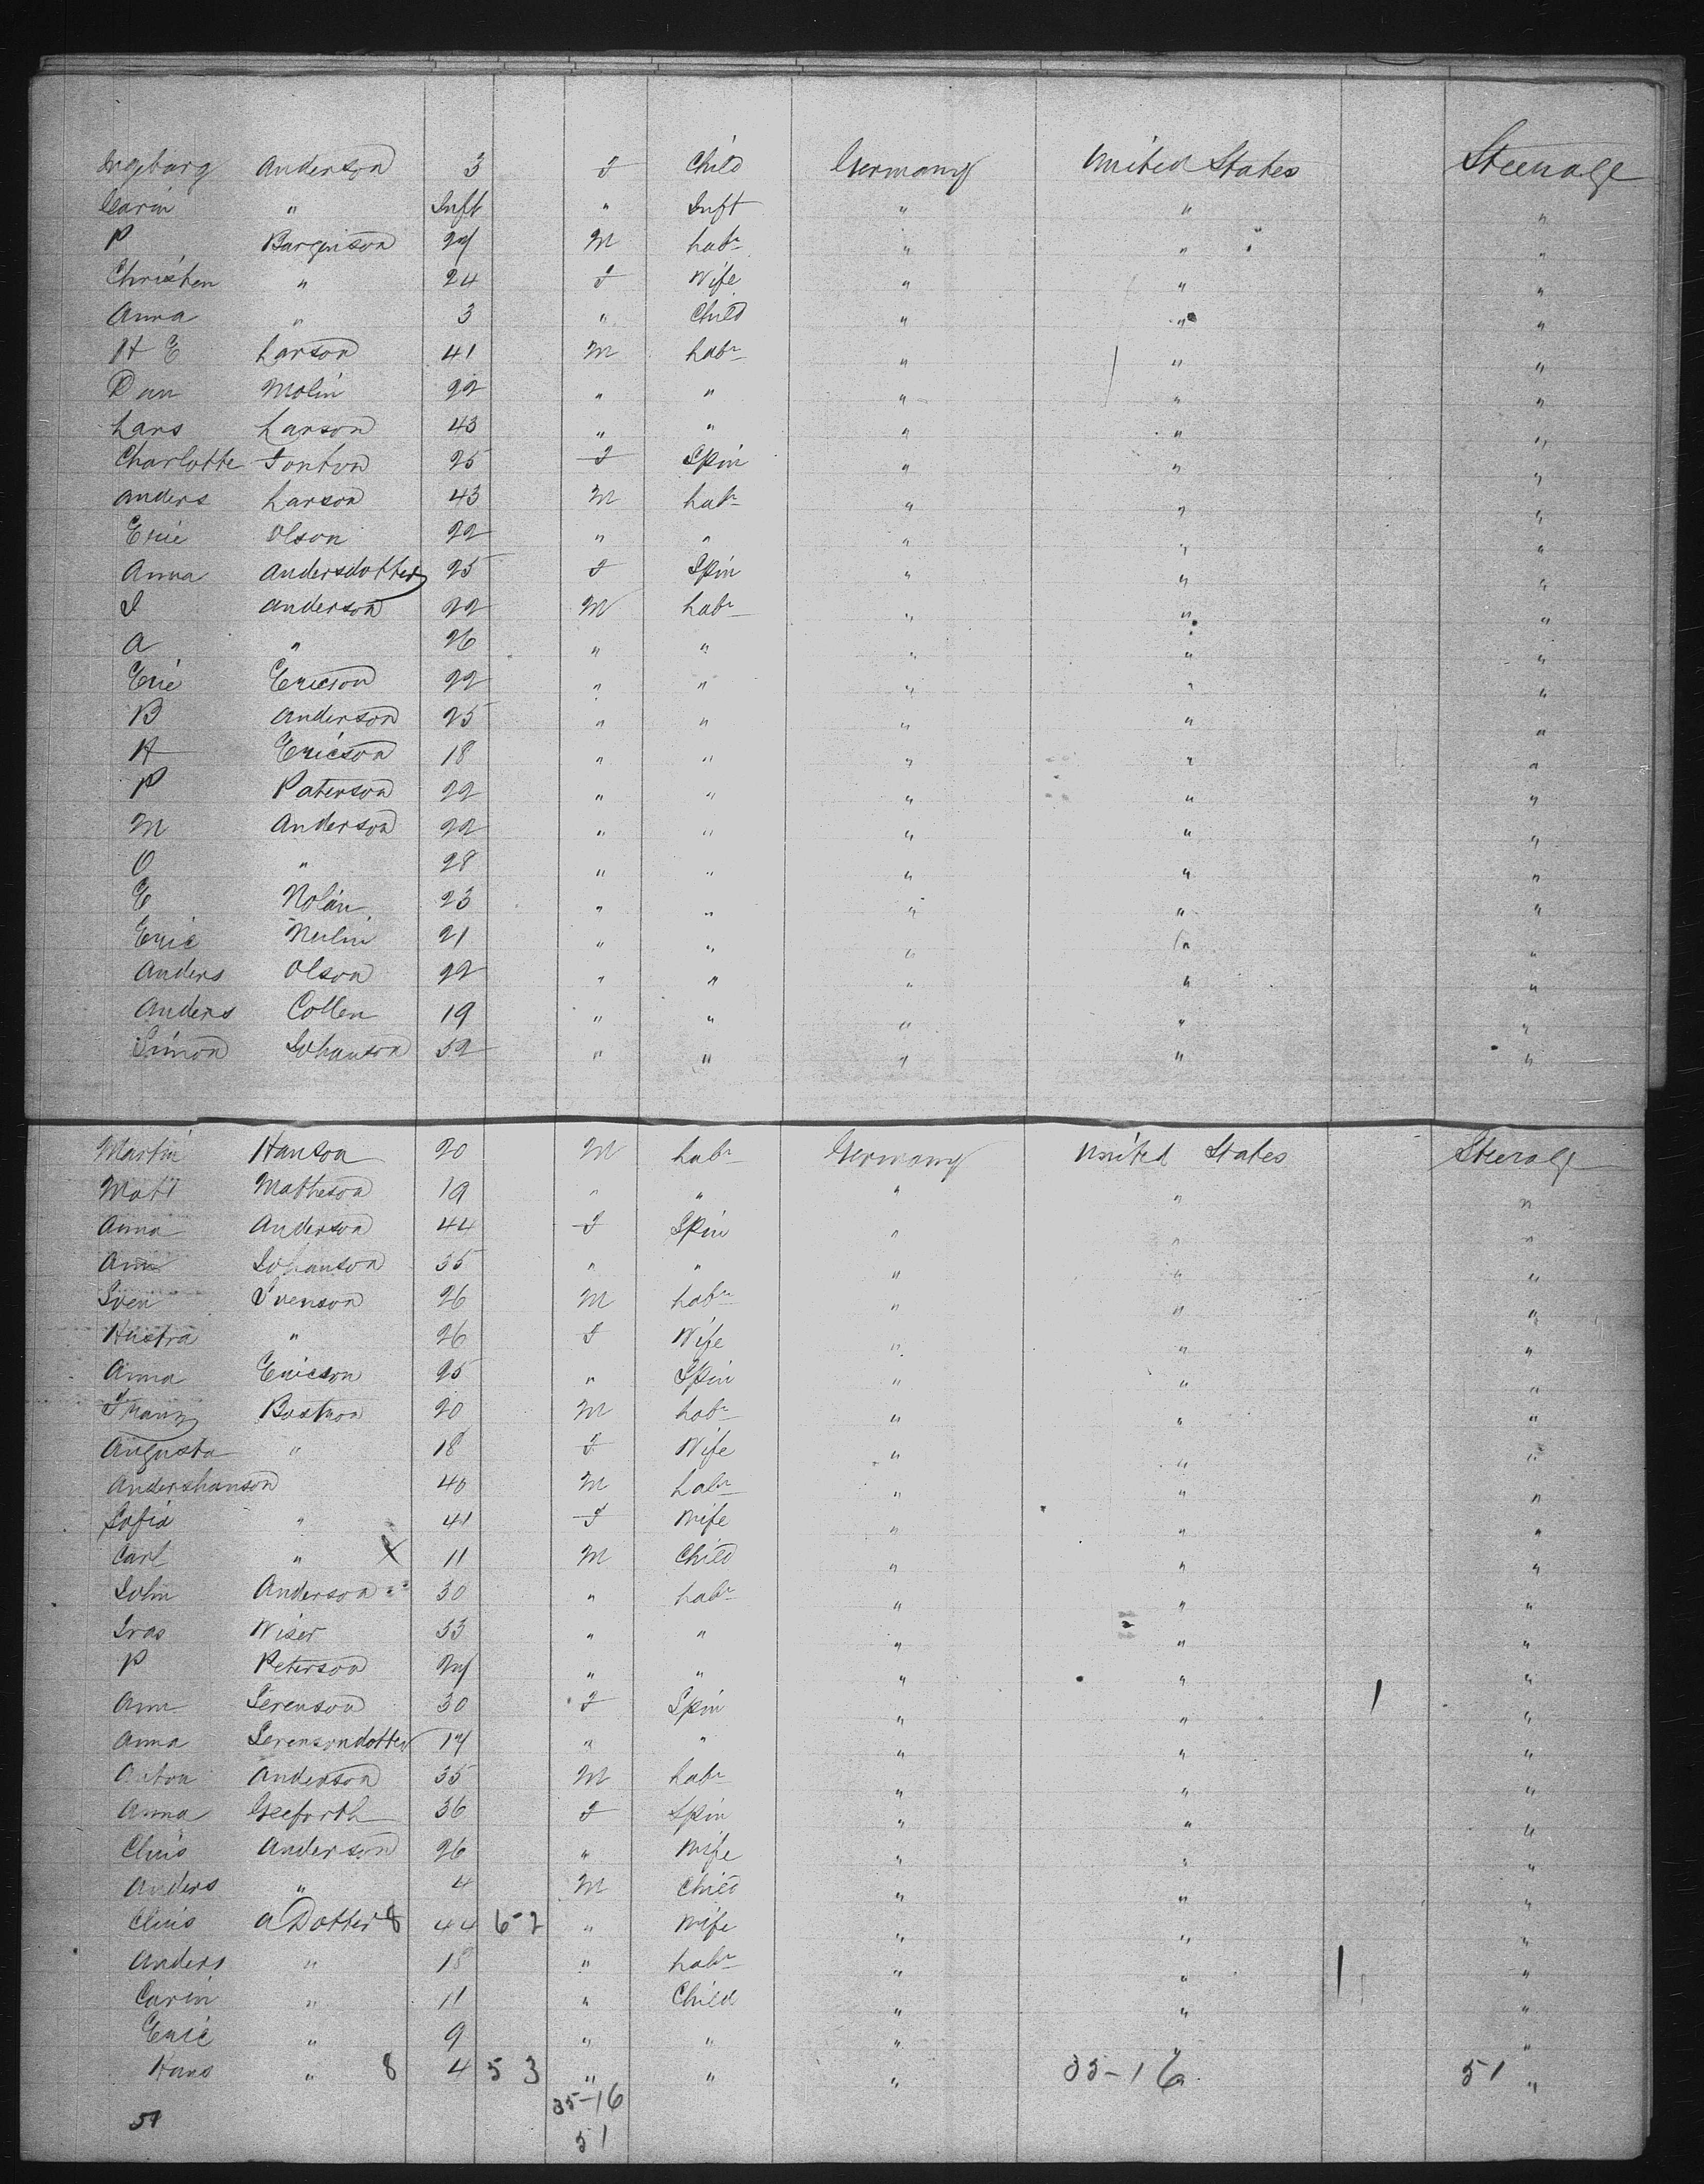 Ingeborg Anderson 3 F Child Germany United States Steerage
Carin " Inft " Inft " " "
P Bargenson 27 M Labr " " "
Christen " 24 F Wife " " "
Anna " 3 " Child " " "
H E Larson 41 M Labr " " "
Dan Molin 22 " " " " "
Lars Larson 43 " " " " "
Charlotte 25 F Spin " " "
Anders Larson 43 M Labr " " "
Eric Olson 22 " " " " "
Anna Andersdotter 25 F Spin " " "
I Anderson 22 M Labr " " "
A " 26 " " " " "
Eric Ericson 22 " " " " "
B Anderson 25 " " " " "
H Ericson 18 " " " " "
P Paterson 22 " " " " "
M Anderson 22 " " " " "
O " 28 " " " " "
E Nolin 23 " " " " "
Eric 21 " " " " "
Anders Olson 22 " " " " "
Anders Collen 19 " " " " "
Simon Johanson 52 " " " " "
Martin Hanson 20 M Labr Germany United States Steerage
Matt Matheson 19 " " " " "
Anna Anderson 44 F Spin " " "
Ann Johanson 35 " " " " "
Sven Svenson 26 M Labr " " "
" 26 F Wife " " "
Anna Ericson 25 " Spin " " "
Franz Bostron 20 M Labr " " "
Augusta " 18 F Wife " " "
Andershanson 40 M Labr " " "
Sofia " 41 F Wife " " "
Carl " X 11 M Child " " "
John Anderson 30 " Labr " " "
Wiser 33 " " " " "
P Peterson 27 " " " " "
Ann Serenson 30 F Spin " " 1 "
Anna Serensondotter 17 " " " " "
Anton Anderson 35 M Labr " " "
Anna Geeforth 36 F Spin " " "
Chris Anderson 26 " Wife " " "
Anders " 4 M Child " " "
Chris A Dotter 8 44 6-2 " Wife " " "
Anders " 18 " Labr " " "
Carin " 11 " Child " " "
Eric " 9 " " " " "
Hans " 8 4 5 3 " " " 35-16 " 51 "
35-16
51 51